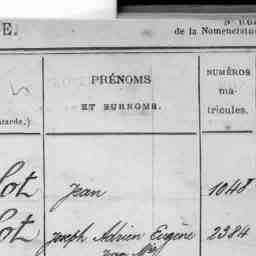 E.
de la Nomenclatu
PRÉNOMS
ET SURNOMS.
NUMÉROS
ma-
tricules.
lot Jean 1048
lot Joseph Adrien Eugène 2384